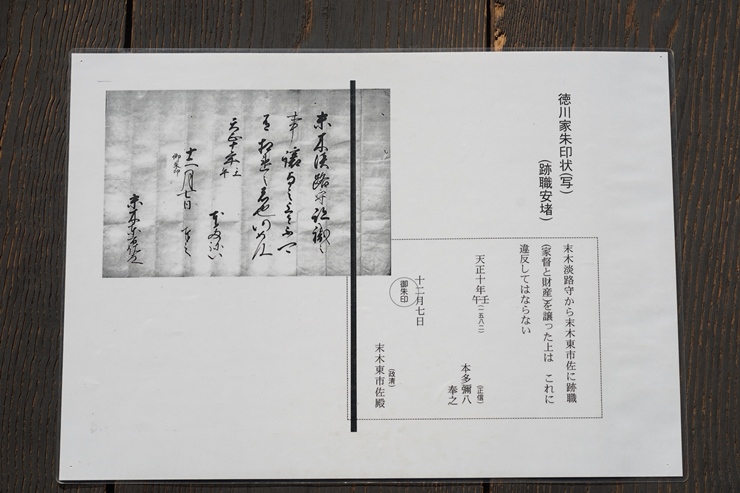 徳川家朱印状(写)
(跡職安堵)
末木淡路守から末木東市佐に跡職
(家督と財産)を譲った上は これに
違反してはならない
天正十年壬午(一五八二)
本多彌八(正信)
奉之
十二月七日
御朱印
末木東市佐殿(政清)
末木淡路守跡職之
事譲与之上者不可
有相違之者也仍如件
天正十年壬午
本多弥八
十二月七日 奉之
御朱印
末木東市佐殿